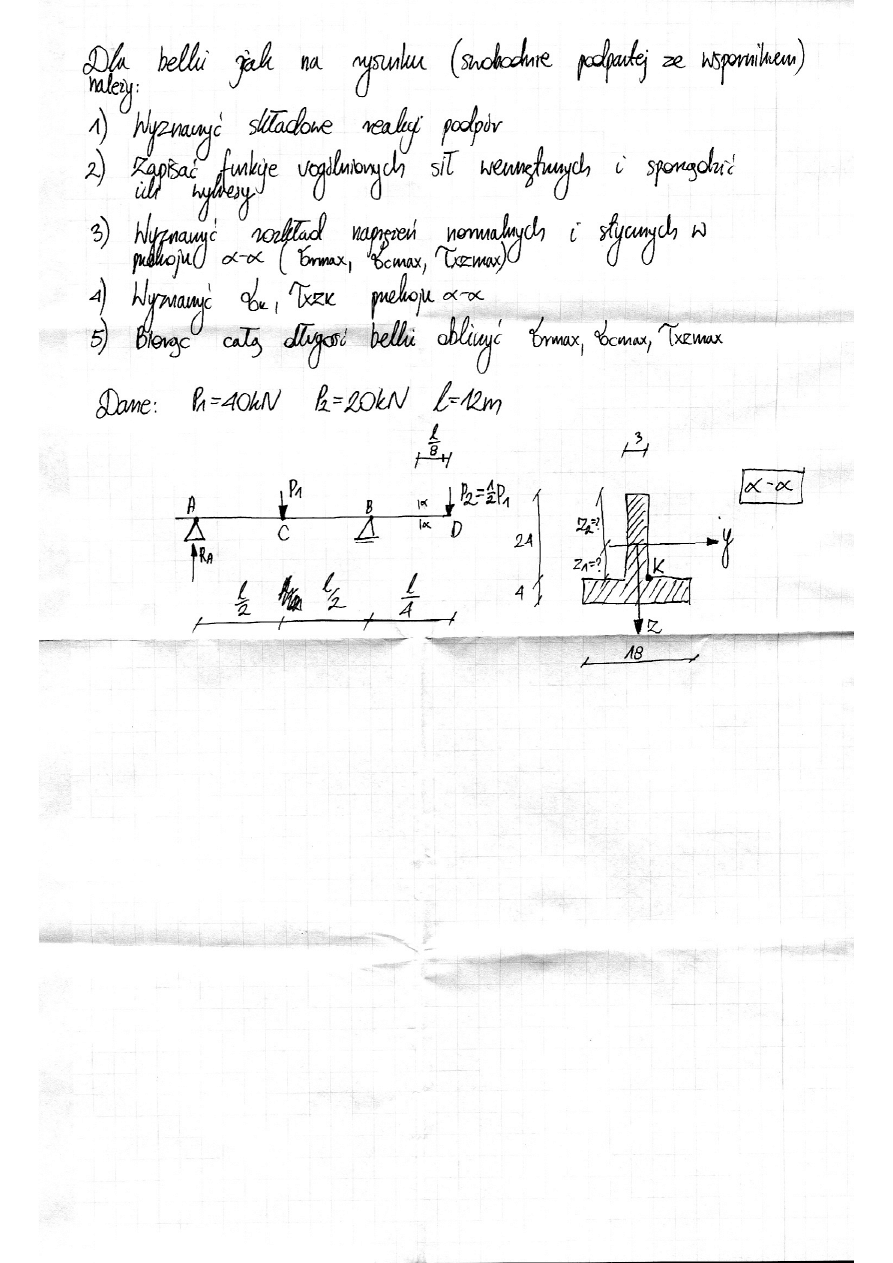 Dla belki jak na rysunku (swobodnie podpartej ze wspornikiem)
należy:
1) Wyznaczyć składowe reakcji podpór
2) Zapisać funkcje uogólnionych sił wewnętrznych i sporządzić
ich wykresy
3) Wyznaczyć rozkład naprężeń normalnych i stycznych w
przekroju α-α (σrmax, σcmax, τxzmax)
4) Wyznaczyć σk, τxzk przekroju α-α
5) Biorąc całą długość belki obliczyć σrmax, σcmax, τxzmax
Dane: P1=40kN P2=20kN l=12m
l/8
3
α-α
A
P1
B
α
α
P2=1/2P1
C
D
RA
l/2
l/2
l/4
24
4
z2=?
z1=?
y
K
z
18